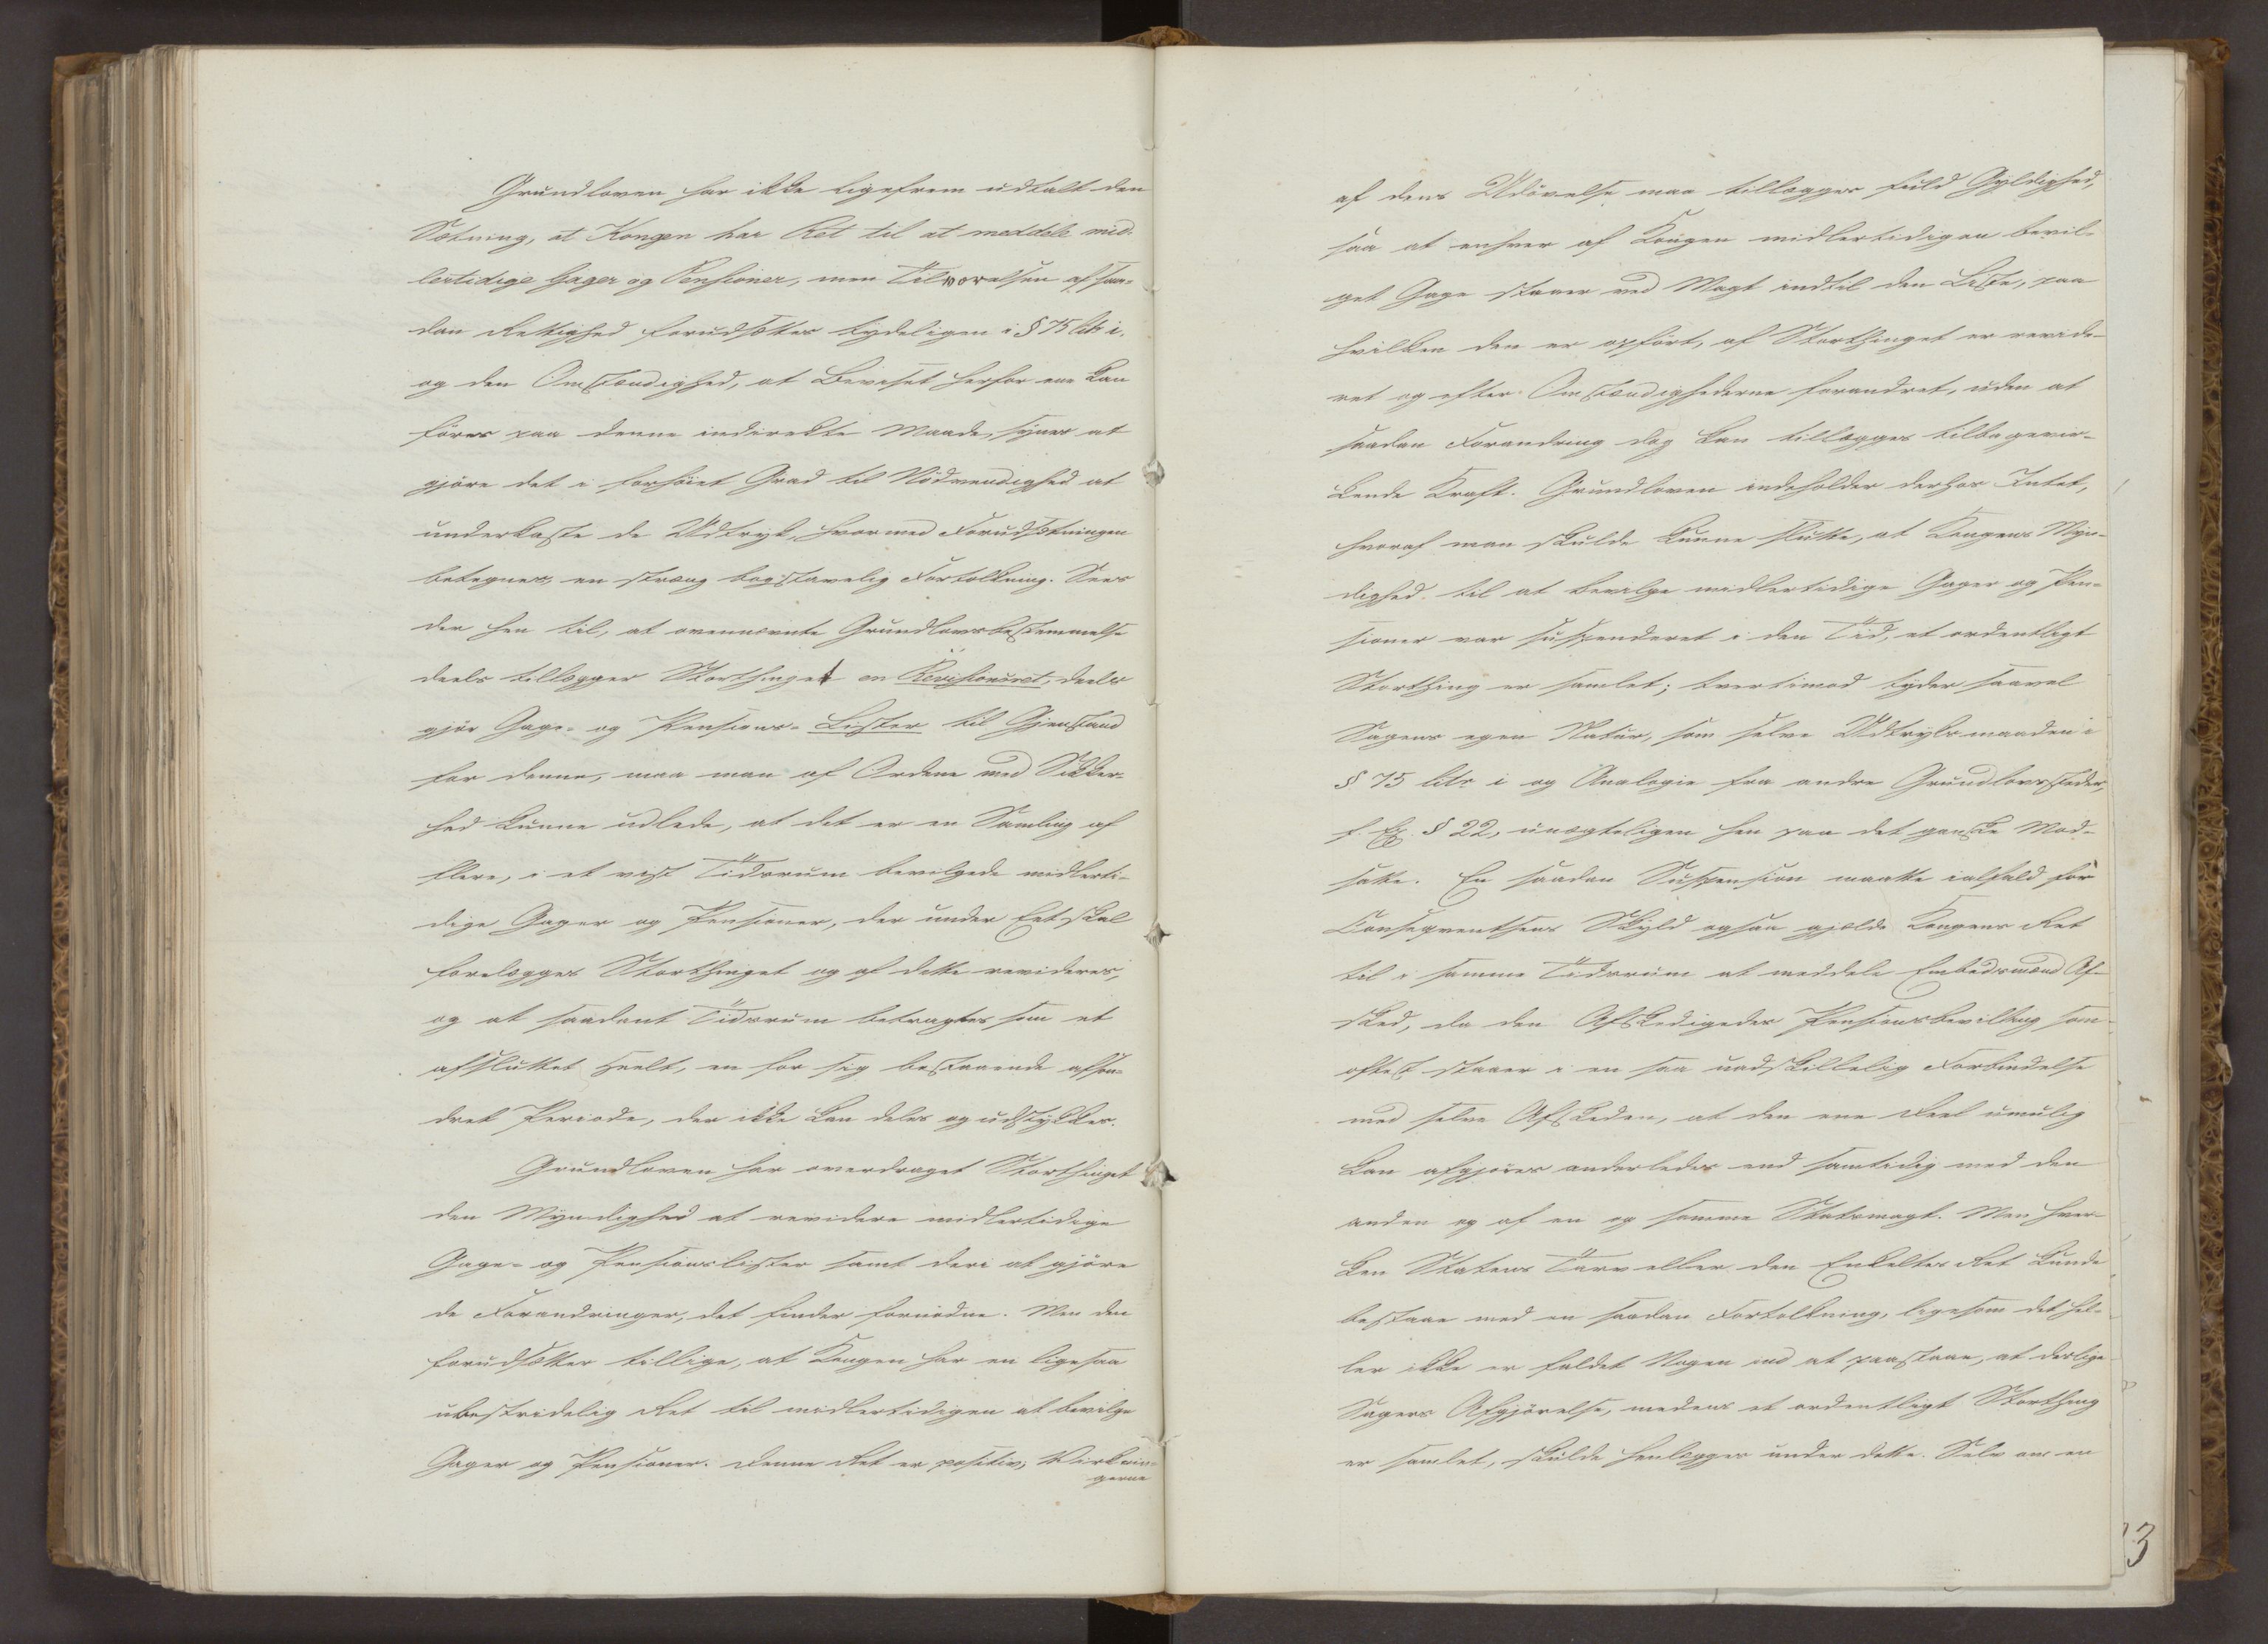 Grundloven har ikke ligefrem udtalt den
Sætning, at Kongen har Ret til at meddele mid-
lertidige Gager og Pensioner, men Tilværelsen af saa-
dan Rettighed forudsættes tydeligen i § 75 litr i,
og den Omstændighed, at Beviset herfor ene kan
føres paa denne indirekte Maade, synes at
gjöre det i forhöiet Grad til Nödvendighed at
underkaste de Udtryk, hvormed Forudsætningen
betegnes, en streng bogstavelig Fortolkning. Sees
der hen til, at ovennævnte Grundlovsbestemmelse
deels tillægger Storthinget en Revisionsret, deels
gjör Gage- og Pensions-Lister til Gjenstand
for denne, maa man af Ordene med Sikker-
hed kunne udlede, at det er en Samling af
flere, i et vist Tidsrum bevilgede midlerti-
dige Gager og Pensioner, der under Eet skal
forelægges Storthinget og af dette revideres,
og at saadant Tidsrum betragtes som et
afsluttet Heelt, en for sig bestaaende afson-
dret Periode, der ikke kan deles og udstykkes.
Grundloven har overdraget Storthinget
den Myndighed at revidere midlertidige
Gage- og Pensionslister samt deri at gjöre
de Forandringer, det finder fornödne. Men den
forudsætter tillige, at Kongen har en ligesaa
ubestridelig Ret til midlertidigen at bevilge
Gager og Pensioner. Denne Ret er positiv; Virknin-
gerne
af dens Udövelse maa tillægges fuld Gyldighed,
saa at enhver af Kongen midlertidigen bevil-
get Gage staaer ved Magt indtil den Liste, paa
hvilken den er opfört, af Storthinget er revide-
ret og efter Omstændighederne forandret, uden at
saadan Forandring dog kan tillægges tilbagevir-
kende Kraft. Grundloven indeholder derhos Intet,
hvoraf man skulde kunne slutte, at Kongens Myn-
dighed til at bevilge midlertidige Gager og Pen-
sioner var suspenderet i den Tid, et ordentligt
Storthing er samlet; tvertimod tyder saavel
Sagens egen Natur, som selve Udtryksmaaden i
§ 75 litr i og Analogie fra andre Grundlovssteder,
f. Ex. § 22, unægteligen hen paa det ganske Mod-
satte. En saadan Suspension maatte ialfald for
Consequentsens Skyld ogsaa gjælde Kongens Ret
til i samme Tidsrum at meddele Embedsmænd Af-
sked, da den Afskedigedes Pensionsbevilling som-
oftest staaer i en saa uadskillelig Forbindelse
med selve Afskeden, at den ene Deel umulig
kan afgjöres anderledes end samtidig med den
anden og af en og samme Statsmagt. Men hver-
ken Statens Tarv eller den Enkeltes Ret kunde
bestaae med en saadan Fortolkning, ligesom det hel-
ler ikke er faldet Nogen ind at paastaae, at deslige
Sagers Afgjörelse, medens et ordentligt Storthing
er samlet, skulde henlægges under dette. Selv om en